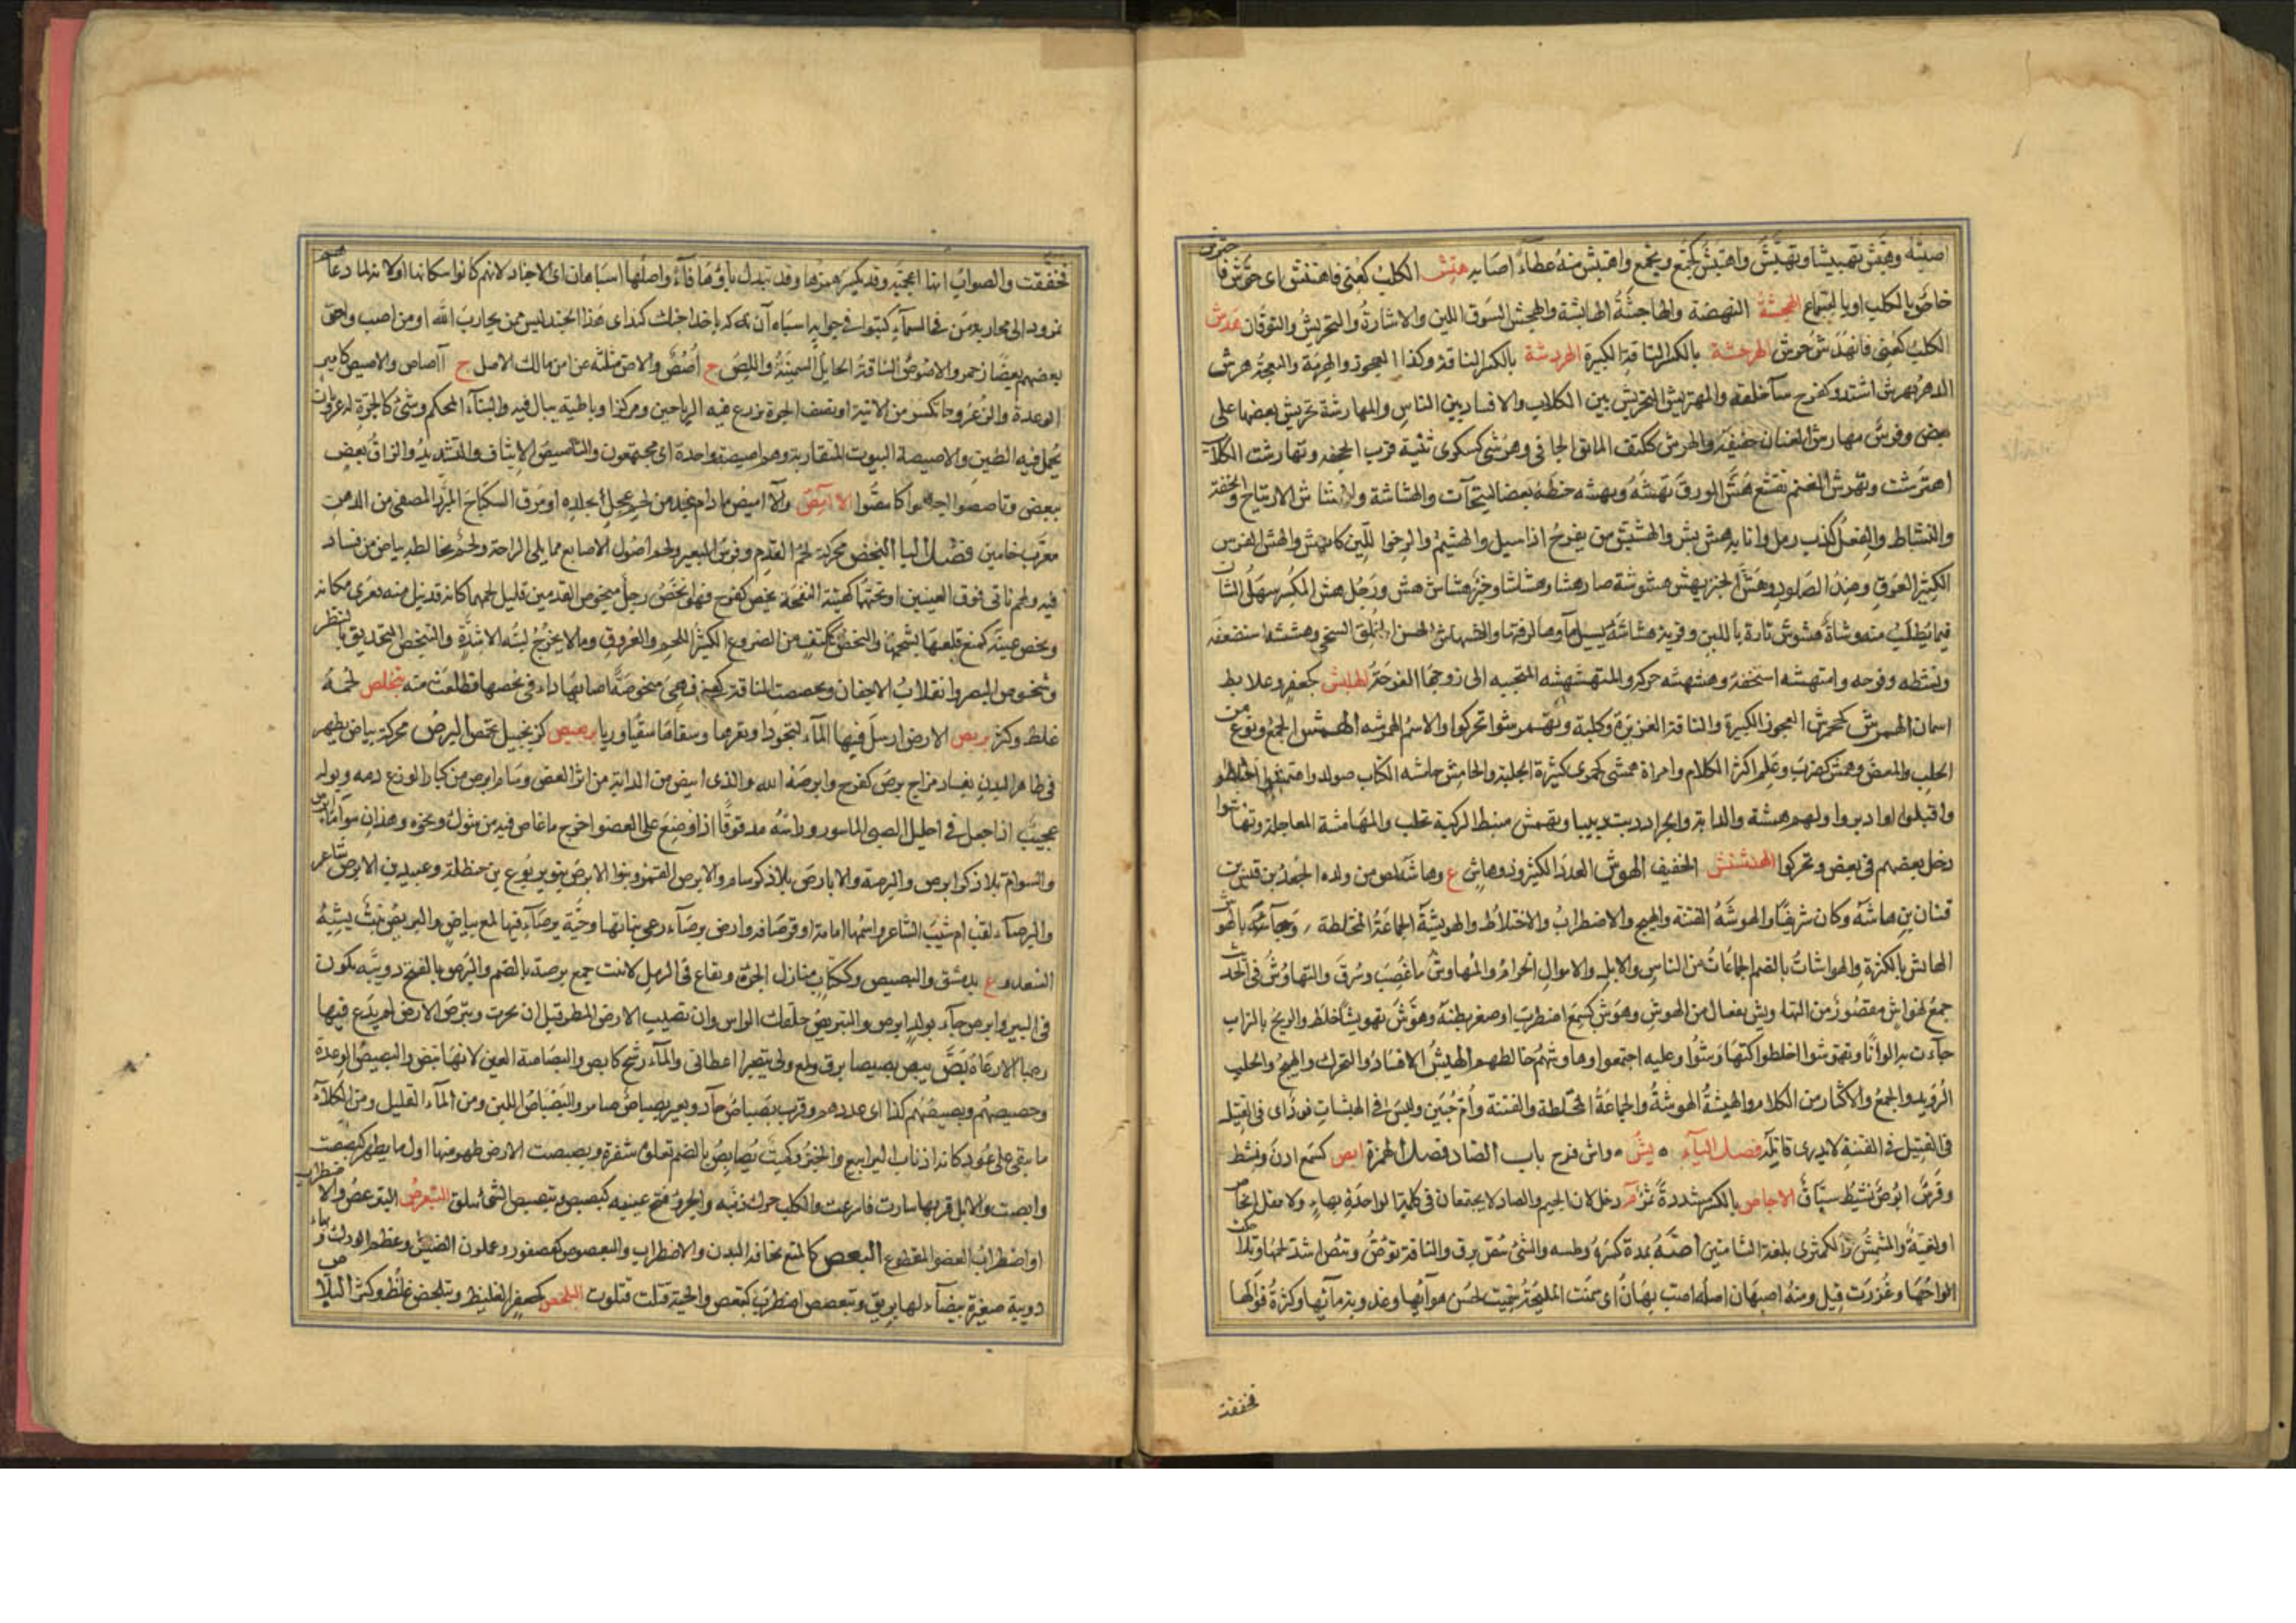 اصيته وهبش تهبيشا وتهبش واهتبش كجمع ويجمع واهتبش منه عطاء اصابه هتش الكلب كعنى فاهتتش اى حرش فا حترش
خاص بالكلب او بالسباع الهجشة النهضة والهاجشة الهابشة والهجش السوق اللين والاشارة والتحريش والتوقان هدش
الكلب كعنى فانهدش حرش الهرجشة بالكسر الناقة الكبيرة الهردشة بالكسر الناقة وكذا العجوز والهرمة والنعجة هرش
الدهر يهرش اشتد وكفرح ساء خلقه والتهريش التحريش بين الكلاب والافساد بين الناس والمهارشة تحريش بعضها على
بعض وفرس مهارش العنان خفيفه والهرش ككتف المائق الجافى وهرشى كسكرى ثنية قرب الجحفه وتهارشت الكلاب
اهترشت وتهرش الغيم تقشع هش الورق يهشه ويهشه خبطه بعصا ليتحات والهشاشة والاشاش الارتياح والخفة
والنشاط والفعل كدب ومل وانا به هش بش والهشيش من يفرح اذا سيل والهشيم والرخو اللين كالهش والهش الفرس
الكثير العرق وضد الصلود وهش الخبز يهش هشوشة صار هشا وهشاشا وخبز هشاش هش ورجل هش المكسر سهل الشان
فيما يطلب منه وشاة هشوش ثارة باللبن وقربة هشاشة يسيل ماؤها لرقتها والهشهاش الحسن الخلق السخى وهششه استضعفه
ونشطه وفرحه واستهشه استخفه وهشهشه حركه والمتهشهشه المتحببه الى زوجها الفرحة الهلبش كجعفر وعلابط
اسمان الهمرش كجحمرش العجوز الكبيرة والناقة الغزيرة وكلبة وتهمرشوا تحركوا والاسم الهمرشه الهمش الجمع ونوع من
الحلب والعض وهمش كضرب وعلم اكثر الكلام وامراة همشى كجمزى كثيرة الجلبة والهامش حاشه الكتاب مولد واهتمشوا اختلطوا
واقبلوا وادبروا ولهم همشة والدابة والجراد دبت دبيبا وتهمش منبط الركية تحلب والمهامشة المعاجلة وتهامشوا
دخل بعضهم فى بعض وتحركوا الهنشنش الخفيف الهوش العدد الكثير وذو هاش ع وهاشة لص من ولده الجعد بن قنين
قنان بن هاشة وكان شريفا والهوشة الفتنة والهيج والاضطراب والاختلاط والهويشة الجماعة المختلطة وجاء بالهوش
الهائش بالكثرة والهواشات بالضم الجماعات من الناس والابل والاموال الحرام والمهاوش ما غصب وسرق والتهاوش فى الحديث
جمع تهواش مقصور من التهاويش تفعال من الهوش وهوش كسمع اضطرب او صغر بطنه وهوش تهويشا خلط والريح بالتراب
جاءت به الوانا وتهوشوا اختلطوا كتهاوشوا وعليه اجتمعوا وهاوشهم خالطهم الهيش الافساد والتحرك والهيج والحلب
الرويد والجمع والاكثار من الكلام والهيشة الهوشة والجماعة المختلطة والفتنة وام حبين وليس فى الهيشات قود اى فى القتيل
فى القتيل فى الفتنة لا يدرى قاتله فصل الياء يش واش فرح باب الصاد فصل الهمزة ابص كسمع ارن ونشط
وفرس ابوص نشيط سباق الاجاص بالكسر مشددة ثمر م دخل لان الجيم والصاد لا يجتمعان فى كلمة الواحدة بهاء ولا تقل انجاص
او لغية والمشمش والكمثرى بلغة الشاميين اصه بمدة كسره وملسه والشئ يئص برق والناقة توص وتئص اشتد لحمها وتلاحكت
الواحها وغزرت قيل ومنه اصبهان اصله اصت بهان اى سمنت المليحة سميت لحسن هوائها وعذوبة مائها وكثرة فواكها
فخففت
فخففت والصواب انها اعجمية وقد يكسر همزها وقد تبدل باؤها فاء واصلها اسباهان اى الاجناد لانهم كانوا سكانها او لانهم لما دعاهم
نمرود الى محاربة من فى السماء كتبوا فى جوابه اسباه آن نه كه باخدا جنك كند اى هذا الجند ليس ممن يحارب الله او من اصب واحق
بعضهم بعضا زحمر والاصوص الناقة الحايل السمينة واللص ج اصص والاص مثلثه عن ابن مالك الاصل ج آاصاص والاصيص كامير
الرعدة والذعر وما تكسر من الانية او نصف الجرة يزرع فيه الرياحين ومركن او باطية يبال فيه والبناء المحكم وشئ كالجرة له عروتان
يحمل فيه الطين والاصيصة البيوت المتقاربة وهم اصيصة واحدة اى مجتمعون والتاصيص الايثاق والتشديد والزاق بعض
ببعض وتاصصوا اجتمعوا كائتصوا الآمص والآميص طعام يتخذ من لحم عجل بجلده او مرق السكباج المبرد المصفى من الدهن
معرب خاميز فصل البا البخص محركة لحم القدم وفرسن البعير ولحم اصول الاصابع مما يلى الراحة ولحم يخالطه بياض من فساد
فيه ولحم ناتى فوق العينين او تحتهما كهيئة النفخة بخص كفرح فهو ابخص ورجل مبخوص القدمين قليل لحمهما كانه قد نيل منه فعرى مكانه
وبخص عينه كمنع قلعها بشحمها والبخص ككتف من الضروع الكثير اللحم والعروق وما لا يخرج لبنه الا بشدة والتبخص التحديق بالنظر
وشخوص البصر وانقلاب الاجفان وبخصت الناقة كعنى فهى مبخوصة اصابها داء فى بخصها فظلعت منه تبخلص لحمه
غلظ وكثر بربص الارض ارسل فيها الماء لتجود او بقرها وسقاها سقيا رويا برصيص كزنجبيل بحمص البرص محركة بياض يظهر
فى ظاهر البدن لفساد مزاج برص كفرح وابرصه الله والذى ابيض من الدابة من اثر العض وسام ابرص من كبار الوزغ دمه وبوله
عجيب اذا جعل فى احليل الصبى المأسور ورأسه مدقوقا اذا وضع على العضو اخرج ما غاص فيه من شوك ونحوه وهذان سواما ابرص
والسوام بلا ذكر ابرص والبرصة والابارص بلا ذكر سام والابرص القمر وبنوا الابرص بنو يربوع بن حنظلة وعبيد بن الابرص شاعر
والبرصاء لقب ام شبيب الشاعر واسمها امامة او قرصافه وارض برصاء رعى نباتها وحية برصاء فيها لمع بياض والبريص نبت يشبه
السعد وع بدمشق والبصيص وككتاب منازل الجن وبقاع فى الرمل لا تنبت جمع برصة بالضم والبرص بالفتح دويبة تكون
فى البير وابرص جاء بولد ابرص والتبريص حلقك الراس وان تصيب الارض المطر قبل ان تحرث وتبرص الارض لم يدع فيها
رعيا الا رعاه بص يبص بصيصا برق ولمع ولى بتيسير اعطانى والماء رشح كابص والبصاصة العين لانها تبص والبصيص الرعدة
وحصيصهم وبصيصهم كذا اى عددهم وقرب بصباص جاد وبعير بصباص ضامر والبصباص اللبن ومن الماء القليل ومن الكلاء
ما يبقى على عود كانه اذناب اليرابيع والخبز وكميت بصابص بالضم تعلوه شقرة وبصبصت الارض ظهر منها اول ما يظهر كبصصت
وابصت والابل قربها سارت فاسرعت والكلب حرك ذنبه والجرو فتح عينيه كبصص وتبصبص الشئ تملق التبعرص التبرعص والاضطراب
او اضطراب العضو المقطوع البعص كالمنع نحافه البدن والاضطراب والبعصوص كعصفور وحلزون الضئيل وعظم الورك وبهاء
دويبة صغيرة بيضاء لها بريق وتبعصص اضطرب كتبعص والحية قتلت فتلوت البلخص كجعفر الغليظ وتبلخص غلظ وكثر البلاص